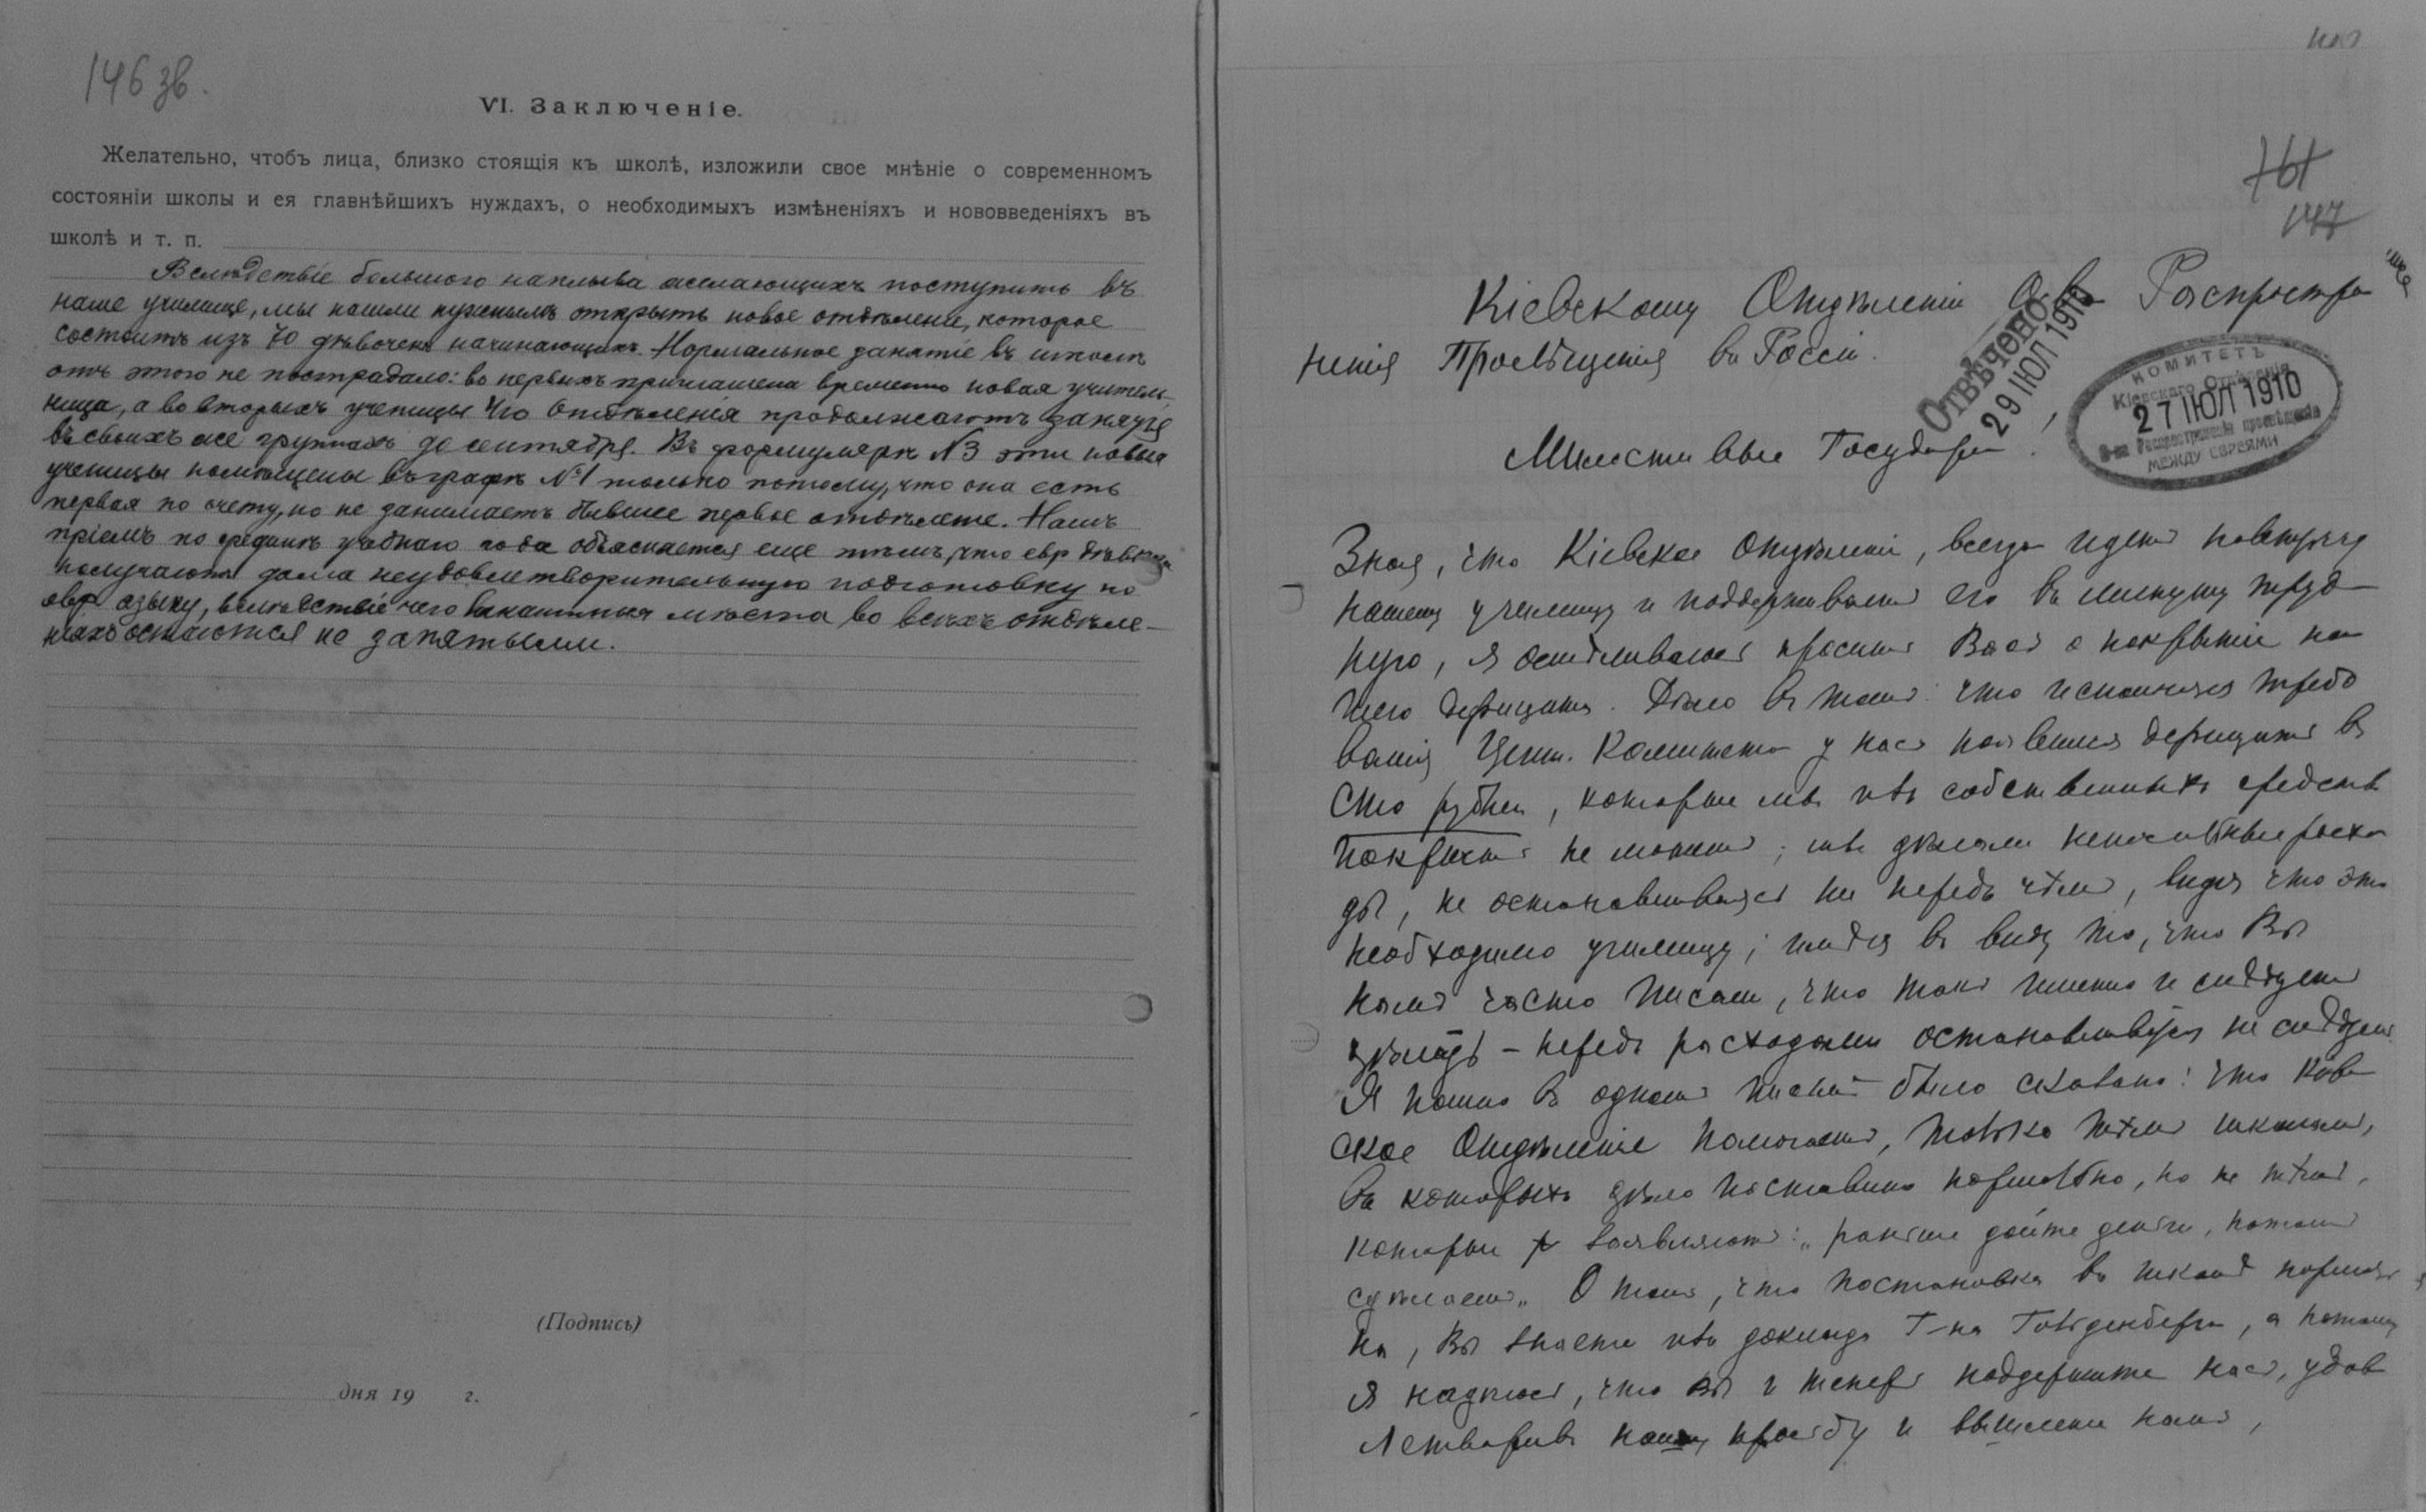 146 зв.
VI. Заключеніе.
Желательно, чтобъ лица, близко стоящія къ школѣ, изложили свое мнѣніе о современномъ
состояніи школы и ея главнѣйшихъ нуждахъ, о необходимыхъ измѣненіяхъ и нововведеніяхъ въ
школѣ и т. п.
Вслѣдствіе большого наплыва желающихъ поступить въ
наше училище, мы нашли нужнымъ открыть новое отдѣленіе, которое
состоитъ изъ 70 дѣвочекъ начинающихъ. Нормальное занятіе въ школѣ
отъ этого не пострадало: во первыхъ приглашена временно новая учитель-
ница, а во вторыхъ ученицы 1го отдѣленія продолжаютъ занятія
въ своихъ же группахъ до сентября. Въ формулярѣ N3 эти новыя
ученицы помѣщены въ графѣ №1 только потому, что она есть
первая по счету, но не занимаетъ бывшее первое отдѣленіе. Нашъ
пріемъ по срединѣ учебнаго года объясняется еще тѣмъ, что евр дѣвочки
получаютъ дома неудовлетворительную подготовку по
евр языку, вслѣдствіе чего вакантныя мѣста во всѣхъ отдѣле-
ніяхъ остаются не занятыми.
(Подпись)
дня 19 г.
147
Кіевскому Отдѣленію О-ва Распростра
ненія Просвѣщенія въ Россіи.
Отвѣчено
29 ІЮЛ 1910
КОМИТЕТЪ
Кіевскаго Отдѣленія
27 ІЮЛ 1910
О-ва Распространенія просвѣщенія
МЕЖДУ ЕВРЕЯМИ
Милостивые Государи!
Зная, что Кіевское Отдѣленіе, всегда идетъ навстрѣчу
нашему училищу и поддерживаетъ его въ минуту труд
ную, я осмѣливаюсь просить Васъ о покрытіи на
шего дефицита. Дѣло въ томъ что исполняя требо
ванія Цент. Комитета у насъ появился дефицитъ въ
Сто рублей, которые мы изъ собственныхъ средствъ
покрыть не можемъ; мы дѣлали непосильные расхо
ды, не останавливаясь ни передъ чѣмъ, видя что это
необходимо училищу; имѣя въ виду то, что Вы
намъ часто писали, что такъ именно и слѣдуетъ
дѣлать – передъ расходами останавливаться не слѣдуетъ
Я помню въ одномъ письмѣ было сказано: что Кіев
ское Отдѣленіе помогаетъ, только тѣмъ школамъ,
въ которыхъ дѣло поставлено нормально, но не тѣмъ,
которые заявляютъ: „раньше дайте деньги, потомъ
сдѣлаемъ„ О томъ, что постановка въ школѣ нормаль
на, Вы знаете изъ доклада Г-на Гольденберга, а потому
я надѣюсь, что Вы и теперь поддержите насъ, удов
летворивъ нашу просьбу и вышлете намъ,